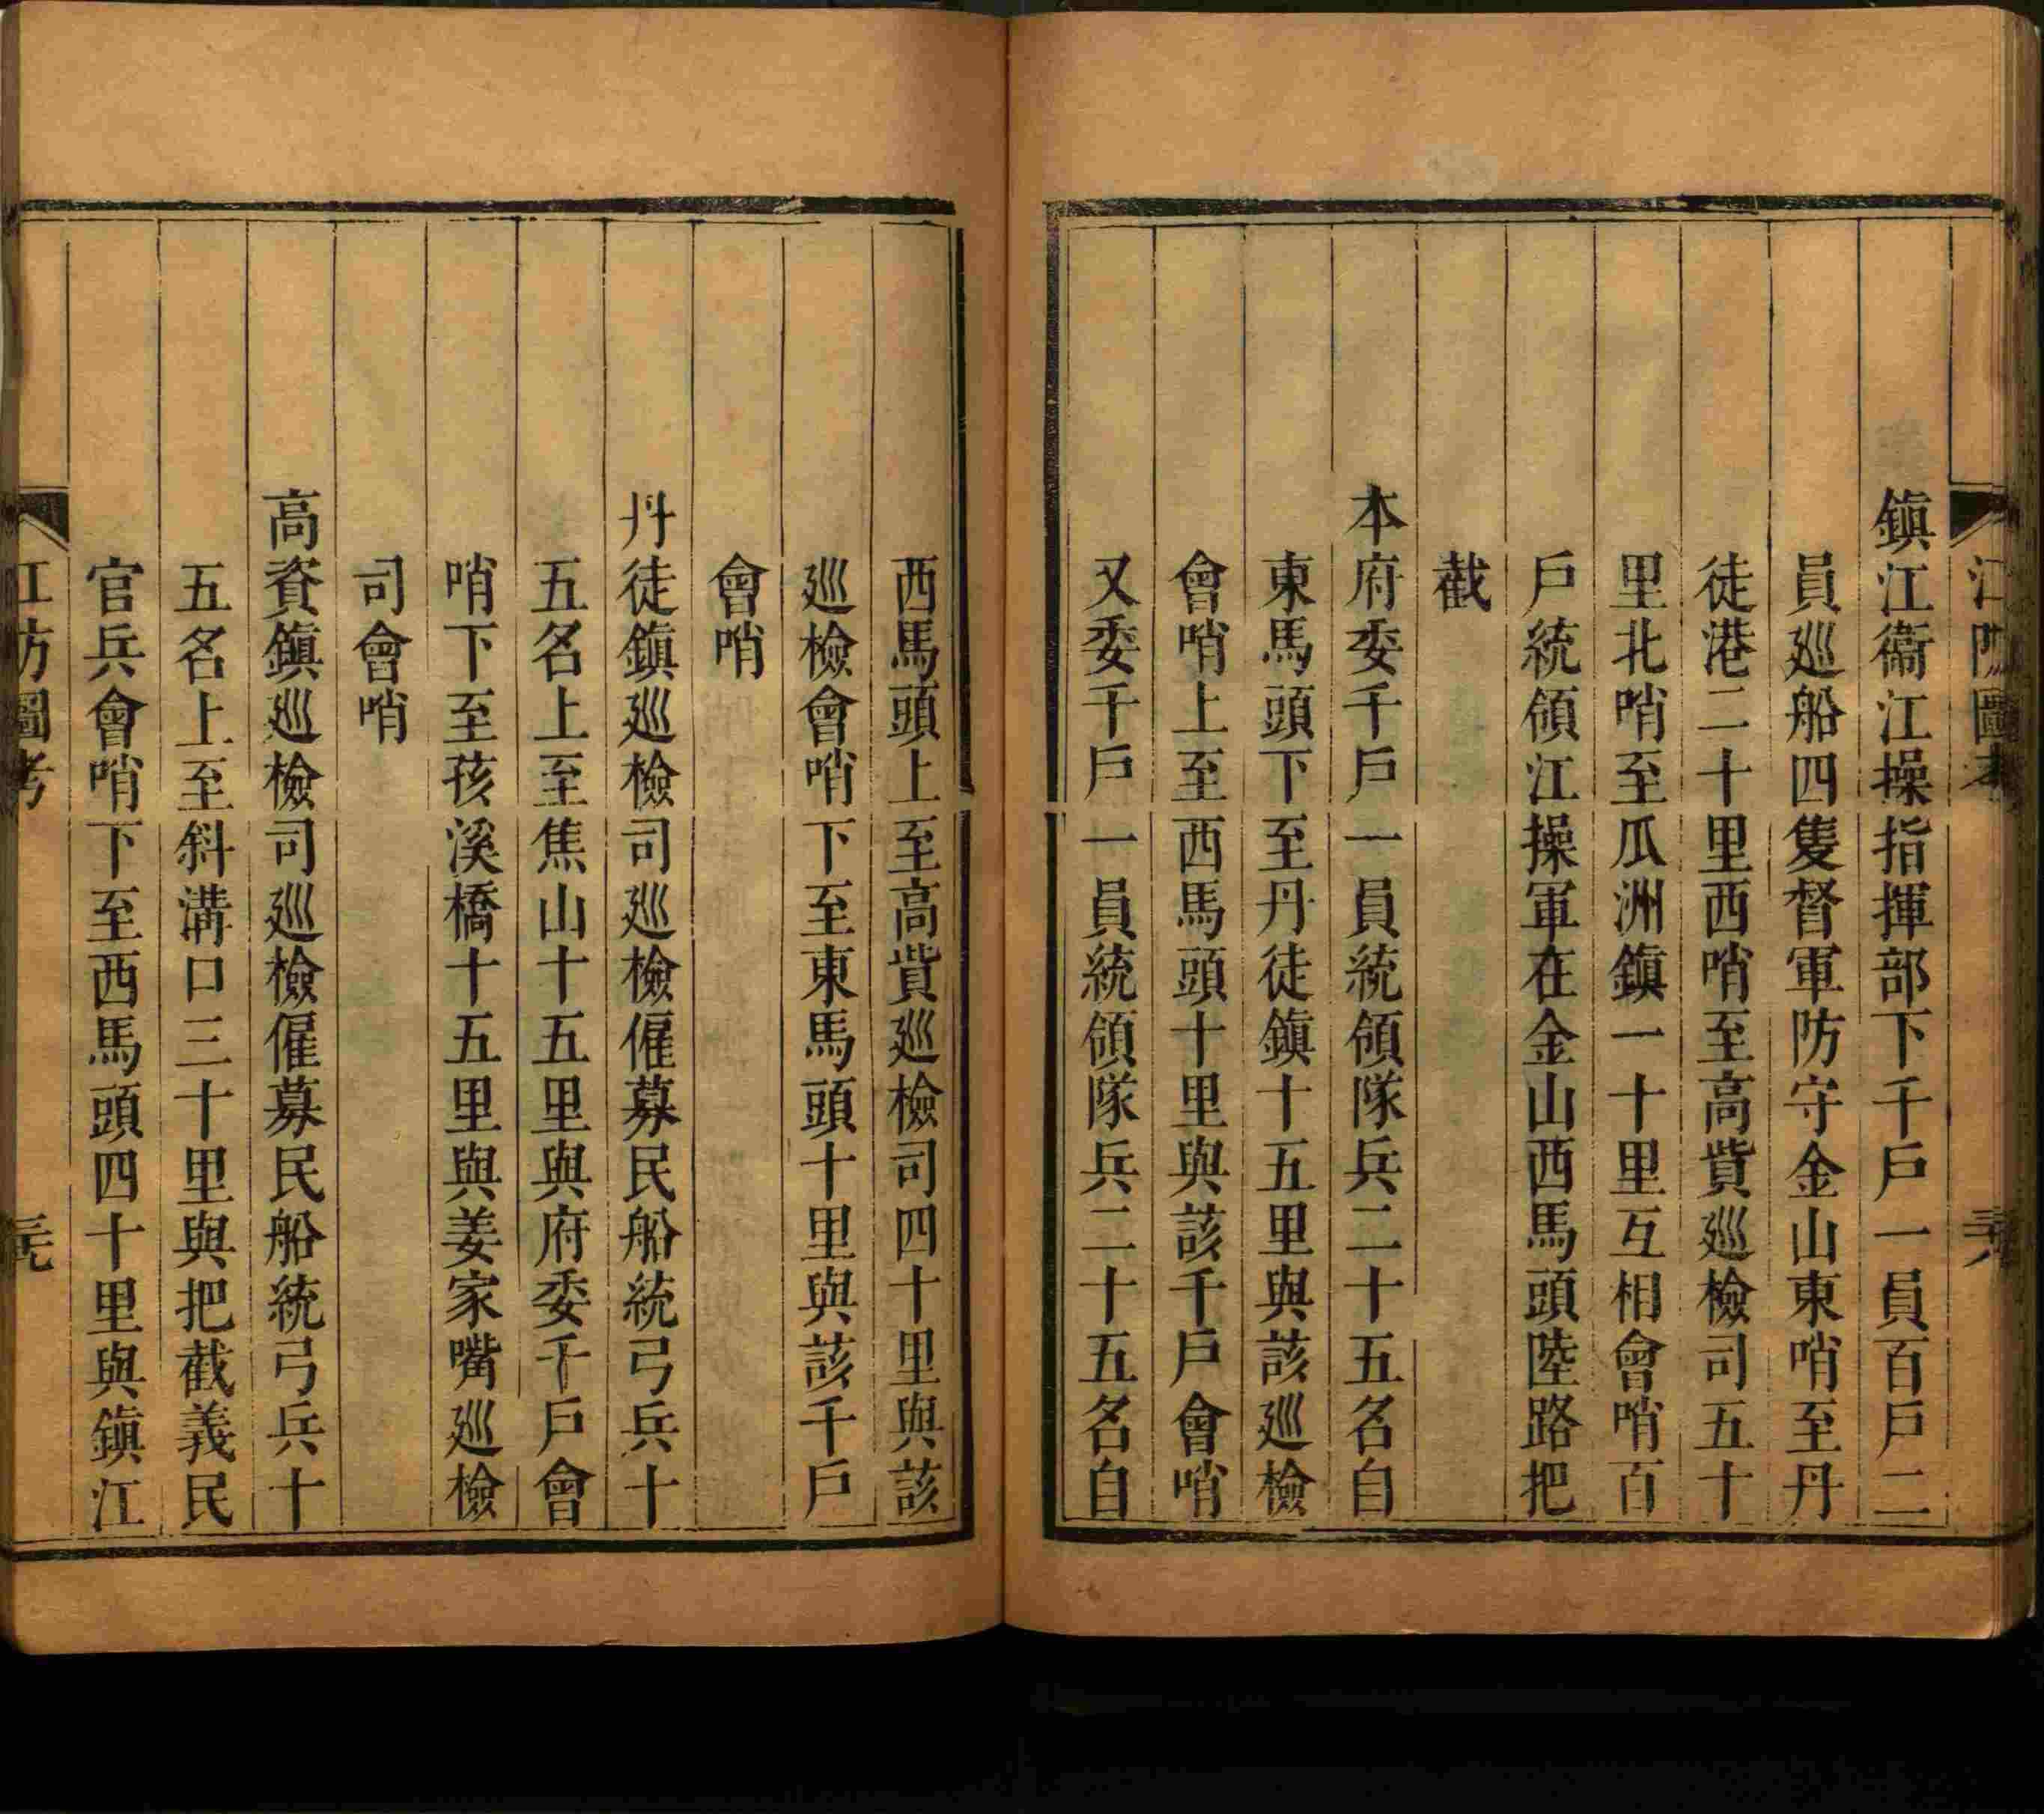 江防圖考
三十八
鎭江衞江操指揮部下千戸一員百戸二
員廵船四隻督軍防守金山東哨至丹
徒港二十里西哨至高貲廵檢司五十
里北哨至瓜洲鎭一十里互相會哨百
戸統領江操軍在金山西馬頭陸路把
截
本府委千戸一員統領隊兵二十五名自
東馬頭下至丹徒鎭十五里與該廵檢
會哨上至西馬頭十里與該千戸會哨
又委千戸一員統領隊兵二十五名自
西馬頭上至高貲廵檢司四十里與該
廵檢會哨下至東馬頭十里與該千戸
會哨
丹徒鎭廵檢司廵檢僱募民船統弓兵十
五名上至焦山十五里與府委千戸會
哨下至孩溪橋十五里與姜家嘴廵檢
司會哨
高資鎭廵檢司廵檢僱募民船統弓兵十
五名上至斜溝口三十里與把截義民
官兵會哨下至西馬頭四十里與鎭江
江防圖考
三十九